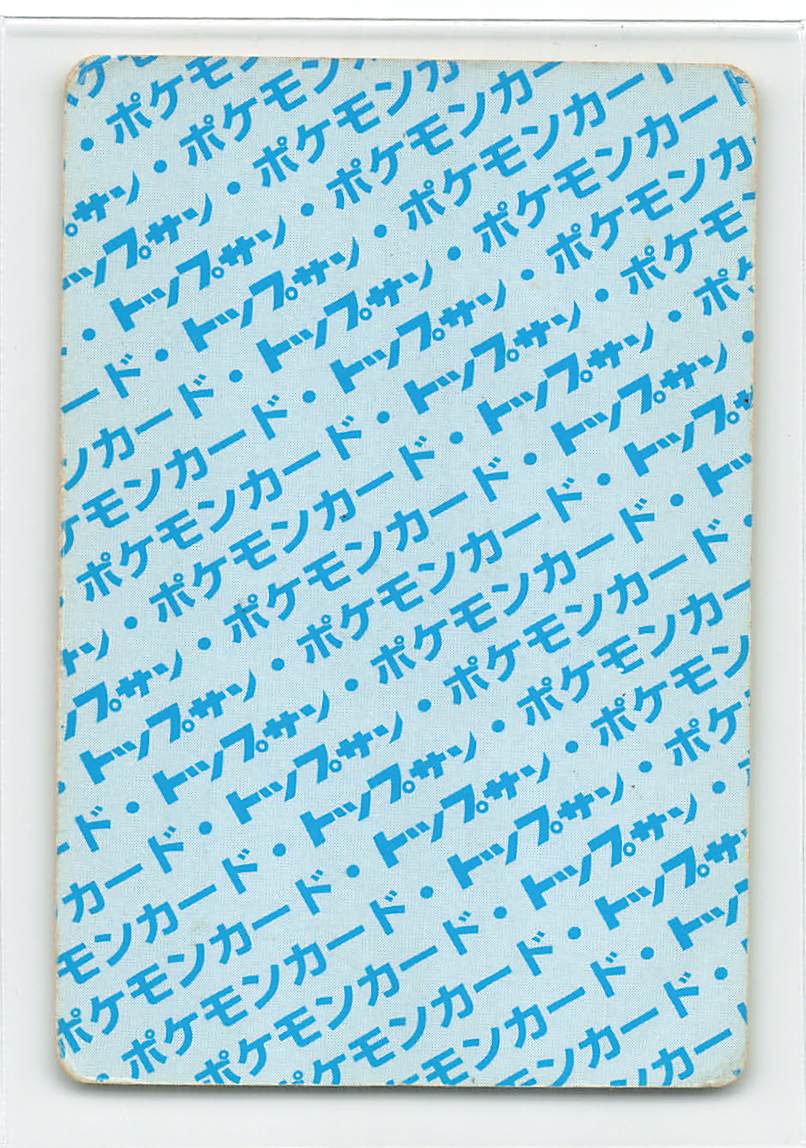 ケモ
・ポケモン
サン・ポケモンカ
ップサン・ポケモンカ
・トップサン・ポケモンカー
ード・トップサン・ポケモンカー
ンカード・トップサン・ポケモンカー
ケモンカード・トップサン・ポケモンカ
ポケモンカード・トップサン・ポケモ
ン・ポケモンカード・トップサン・ポケ
プサン・ポケモンカード・トップサン・
・トップサン・ポケモンカード・トップサ
ド・トップサン・ポケモンカード・トッ
カード・トップサン・ポケモンカード・
モンカード・トップサン・ポケモンカー
ポケモンカード・トップサン・ポケモン
・ポケモンカード・トップサン・ポケ
ポケモンカード・トップサン・
ケモンカード・トップサ
モンカード・トップ
ンカード・
ンカー